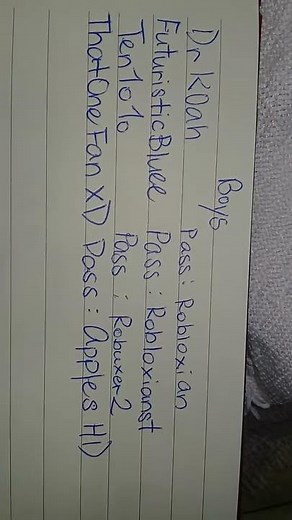 Boys
Dr K0ah Pass : Robloxian
FuturisticBluee Pass : Robloxianst
Ten1o1o Pass : Robuxer2
ThatOneFanXD Pass : ApplesHD